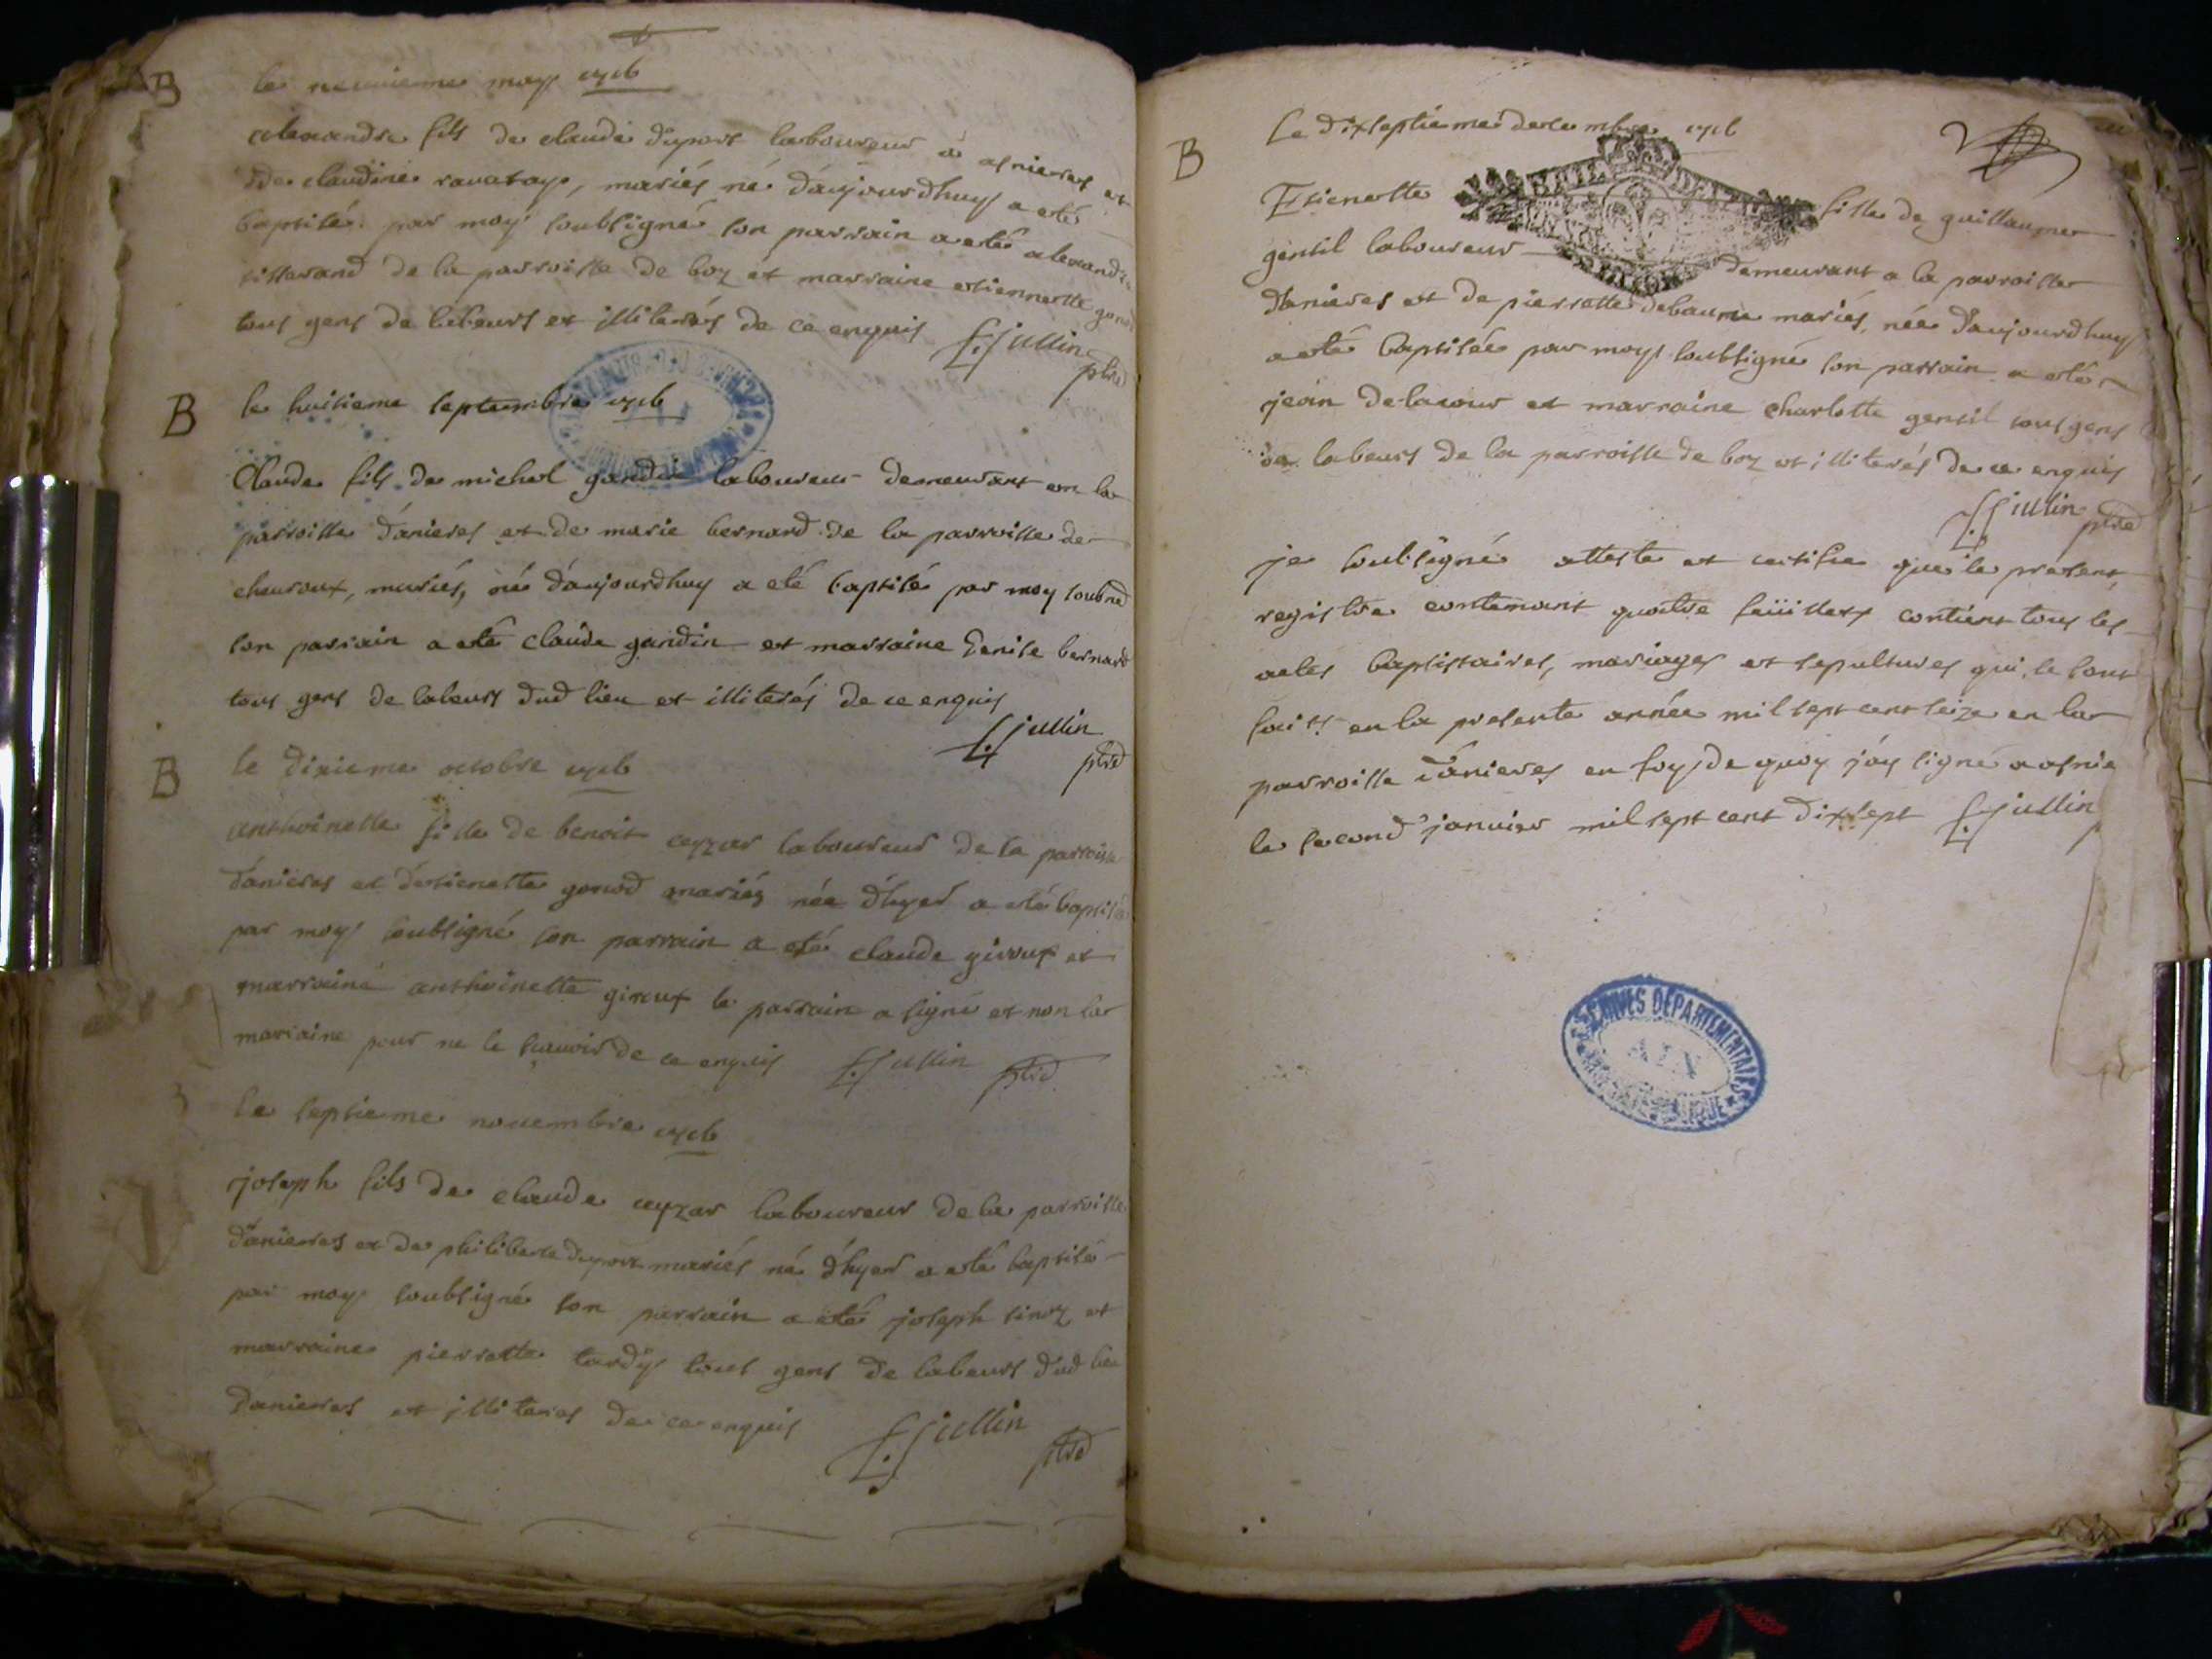 B
le neuuieme may
alexandre fils de claude dupont laboureur a asnieres et
de claudine rauatay, mariés né daujourdhuy a eté
baptisé par moy soubsigné son parrain a eté alexandre
tisserand de la parroisse de boz et marraine estiennette
tous gens de labeurs et illiterés de ce enquis jullin
B
le huitieme septembre
Claude fils de michel gandin laboureur demeurant en la
parroisse d'anieres et de marie bernard de la parroisse de
cheuroux, mariés, né d'aujourdhuy a eté baptisé par moy soubné
son parrain a eté claude gandin et marraine Denise bernard
tous gens de labeurs dud lieu et illiterés de ce enquis
jullin
B
le dixieme octobre
anthoinette fille de benoit ceyzar laboureur de la parroisse
d'anieres et d'estienette gonod mariés née d'hyer a eté baptisée
par moy soubsigné son parrain a eté claude giroux et
marraine anthoinette giroux le parrain a signé et non la
marraine pour ne le sçauoir de ce enquis jullin
le septieme nouembre
joseph fils de claude ceyzar laboureur de la parroisse
d'anieres et de philiberte dupont mariés né d'hyer a eté baptisé
par moy soubsigné son parrain a eté joseph et
marraine pierrette tardy tous gens de labeurs dud lieu
d'anieres et illiteres de ce enquis jullin
B
Le dixseptieme decembre
Etienette fille de guillaume
gentil laboureur demeurant a la parroisse
d'anieres et de pierrette debaune mariés, née d'aujourdhuy
a eté baptisée par moy soubsigné son parrain a eté
jean delacour et marraine charlotte gentil tous gens
de labeurs de la parroisse de boz et illiterés de ce enquis
jullin
je soubsigné atteste et certifie que le present
registre contenant quatre feüillets contient tous les
actes baptistaires, mariages et sepultures qui se sont
faits en la presente année mil sept cent seize en la
parroisse d'anieres en foy de quoy j'ay signé a asnie
le second januier mil sept cent dixsept jullin
ARCHIVES DÉPARTEMENTALES
AIN